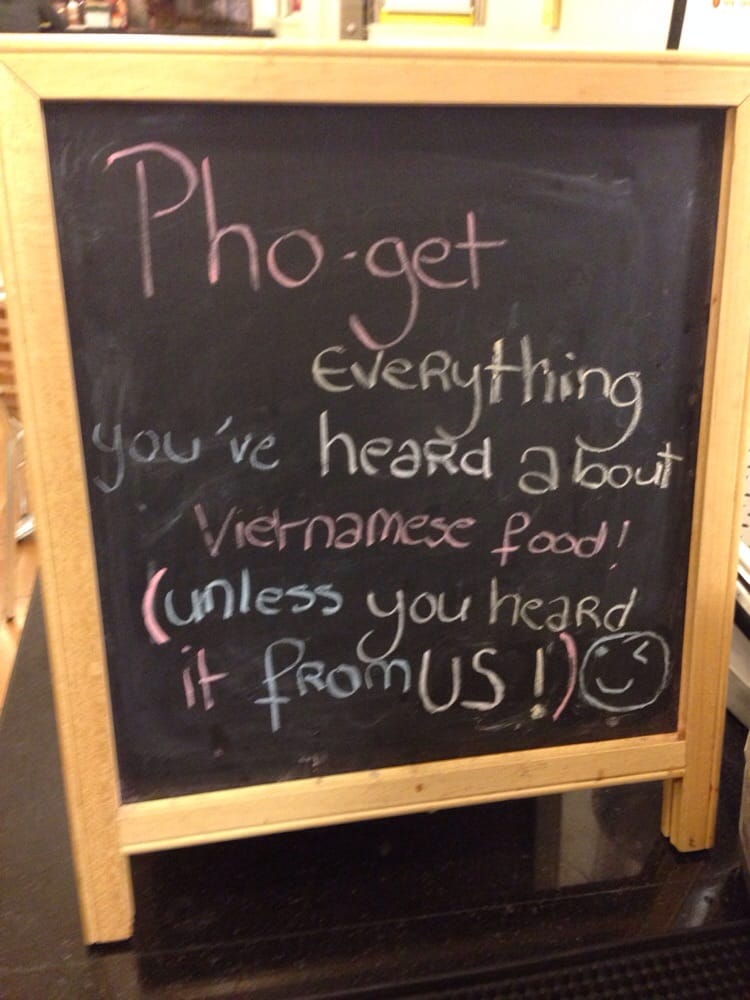 Pho-get
Everything
you've heard about
Vietnamese food!
(unless you heard
it from US!)